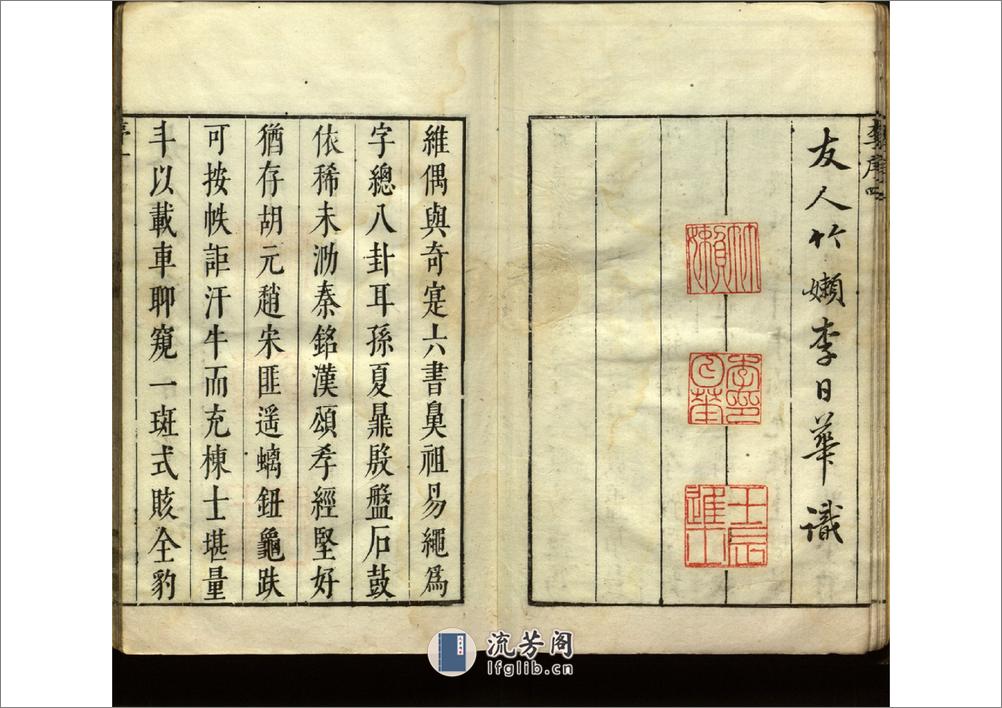 友人竹嬾李日華識
竹嬾
李日華印
壬辰進士
維偶與奇寔六書鼻祖易繩爲
字總八卦耳孫夏鼎殷盤石鼓
依稀未泐秦銘漢頌孝經堅好
猶存胡元趙宋匪遥螭鈕龜趺
可按帙詎汗牛而充棟士堪量
斗以載車聊窺一斑式賅全豹
流芳阁
lfglib.cn